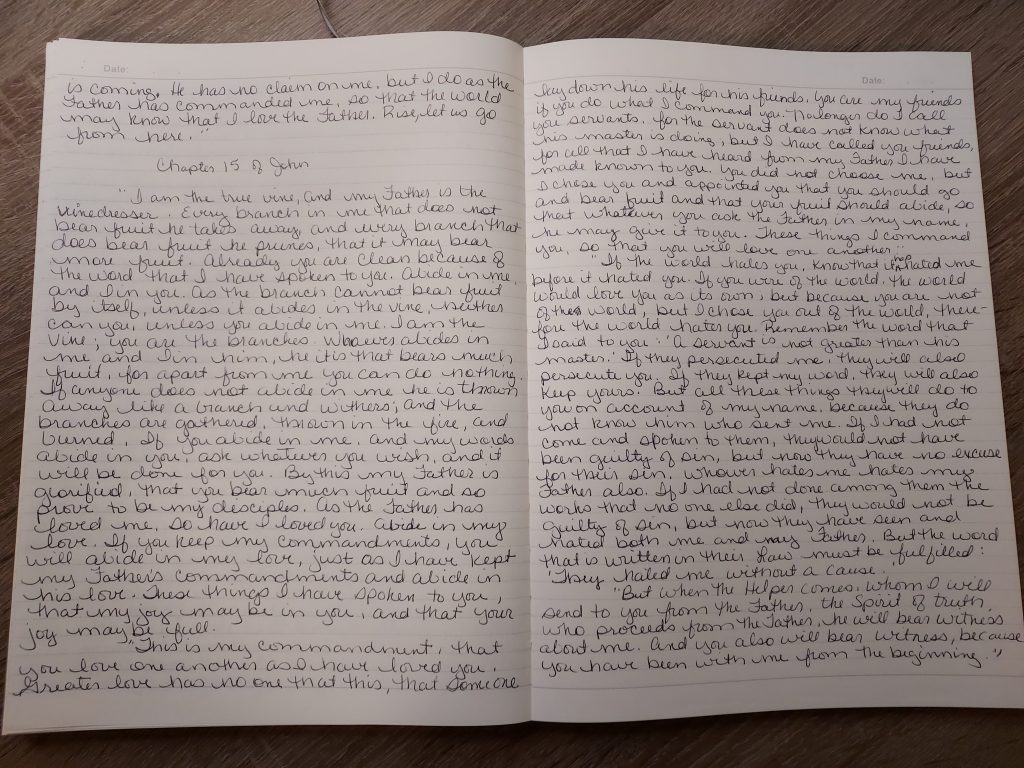 Date:
is coming. He has no claim on me, but I do as the
Father has commanded me, so that the world
may know that I love the Father. Rise, let us go
from here."
Chapter 15 of John
"I am the true vine, and my Father is the
vinedresser. Every branch in me that does not
bear fruit he takes away, and every branch that
does bear fruit he prunes, that it may bear
more fruit. Already you are clean because of
the word that I have spoken to you. Abide in me,
and I in you. As the branch cannot bear fruit
by itself, unless it abides in the vine, neither
can you, unless you abide in me. I am the
vine; you are the branches. Whoever abides in
me and I in him, he it is that bears much
fruit, for apart from me you can do nothing.
If anyone does not abide in me he is thrown
away like a branch and withers; and the
branches are gathered, thrown in the fire, and
burned. If you abide in me, and my words
abide in you, ask whatever you wish, and it
will be done for you. By this my Father is
glorified, that you bear much fruit and so
prove to be my disciples. As the Father has
loved me, so have I loved you. Abide in my
love. If you keep my commandments, you
will abide in my love, just as I have kept
my Father's commandments and abide in
his love. These things I have spoken to you,
that my joy may be in you, and that your
joy may be full.
"This is my commandment, that
you love one another as I have loved you.
Greater love has no one that this, that someone
Date:
lay down his life for his friends. You are my friends
if you do what I command you. No longer do I call
you servants, for the servant does not know what
his master is doing; but I have called you friends,
for all that I have heard from my Father I have
made known to you. You did not choose me, but
I chose you and appointed you that you should go
and bear fruit and that your fruit should abide, so
that whatever you ask the Father in my name,
he may give it to you. These things I command
you, so that you will love one another."
"If the world hates you, know that it has hated me
before it hated you. If you were of the world, the world
would love you as its own; but because you are not
of the world, but I chose you out of the world, there-
fore the world hates you. Remember the word that
I said to you: 'A servant is not greater than his
master.' If they persecuted me, they will also
persecute you. If they kept my word, they will also
keep yours. But all these things they will do to
you on account of my name, because they do
not know him who sent me. If I had not
come and spoken to them, they would not have
been guilty of sin, but now they have no excuse
for their sin. Whoever hates me hates my
Father also. If I had not done among them the
works that no one else did, they would not be
guilty of sin, but now they have seen and
hated both me and my Father. But the word
that is written in their Law must be fulfilled:
'They hated me without a cause.'
"But when the Helper comes, whom I will
send to you from the Father, the Spirit of truth,
who proceeds from the Father, he will bear witness
about me. And you also will bear witness, because
you have been with me from the beginning."